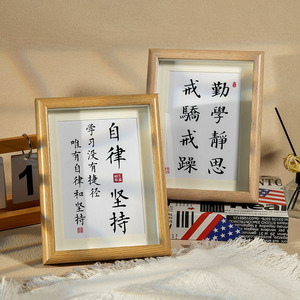 自律 坚持
学习没有捷径
唯有自律和坚持
勤學靜思
戒驕戒躁
1